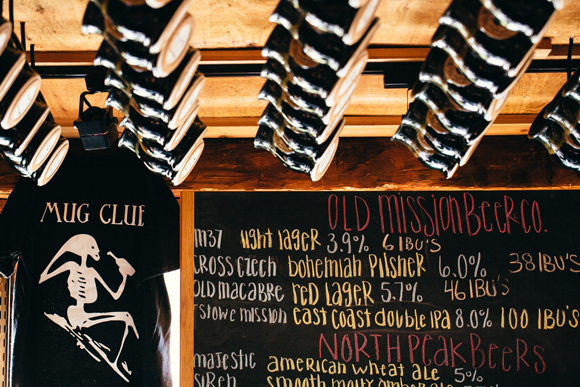 MUG CLUB
OLD MISSION BEER CO.
M37 light lager 3.9% 6 IBU's
CROSS CZECH bohemian Pilsner 6.0% 38 IBU's
OLD MACABRE red lager 5.7% 46 IBU's
STOWE MISSION east coast double IPA 8.0% 100 IBU's
NORTH PEAK BEERS
MAJESTIC american wheat ale 5%
SIREN smooth malty amber ale